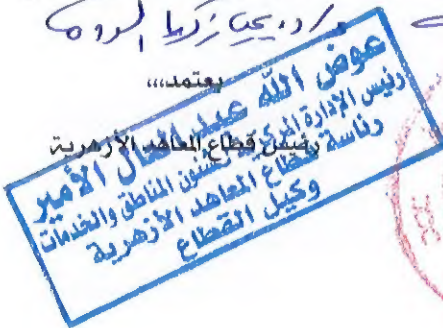 يعتمد،،،،
رئيس قطاع المعاهد الأزهرية
عوض الله عبد العال الأمير
رئيس الإدارة المركزية لشئون المناطق والخدمات
رئاسة قطاع المعاهد الأزهرية
وكيل القطاع